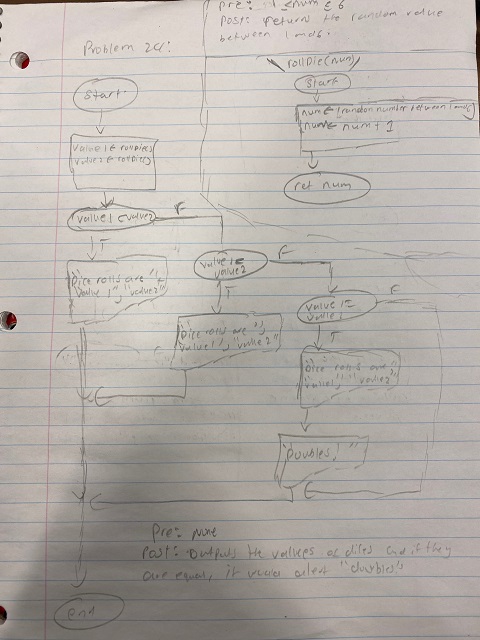 Pre: 1 ≤ num ≤ 6
Post: return the random value
between 1 and 6.
Problem 2c:
rollDie(num)
Start
num ← (random number between 1 and 6)
num ← num + 1
ret num
Start
value1 ← rollDie()
value2 ← rollDie()
value1 < value2
F
T
"Dice rolls are",
value1, "value2"
value1
value2
F
T
"Dice rolls are",
value1, "value2"
value1 =
F
T
"Dice rolls are",
value1, "value2"
"Doubles!"
Pre: None
Post: Outputs the values of dies and if they
are equal, it "doubles"
end